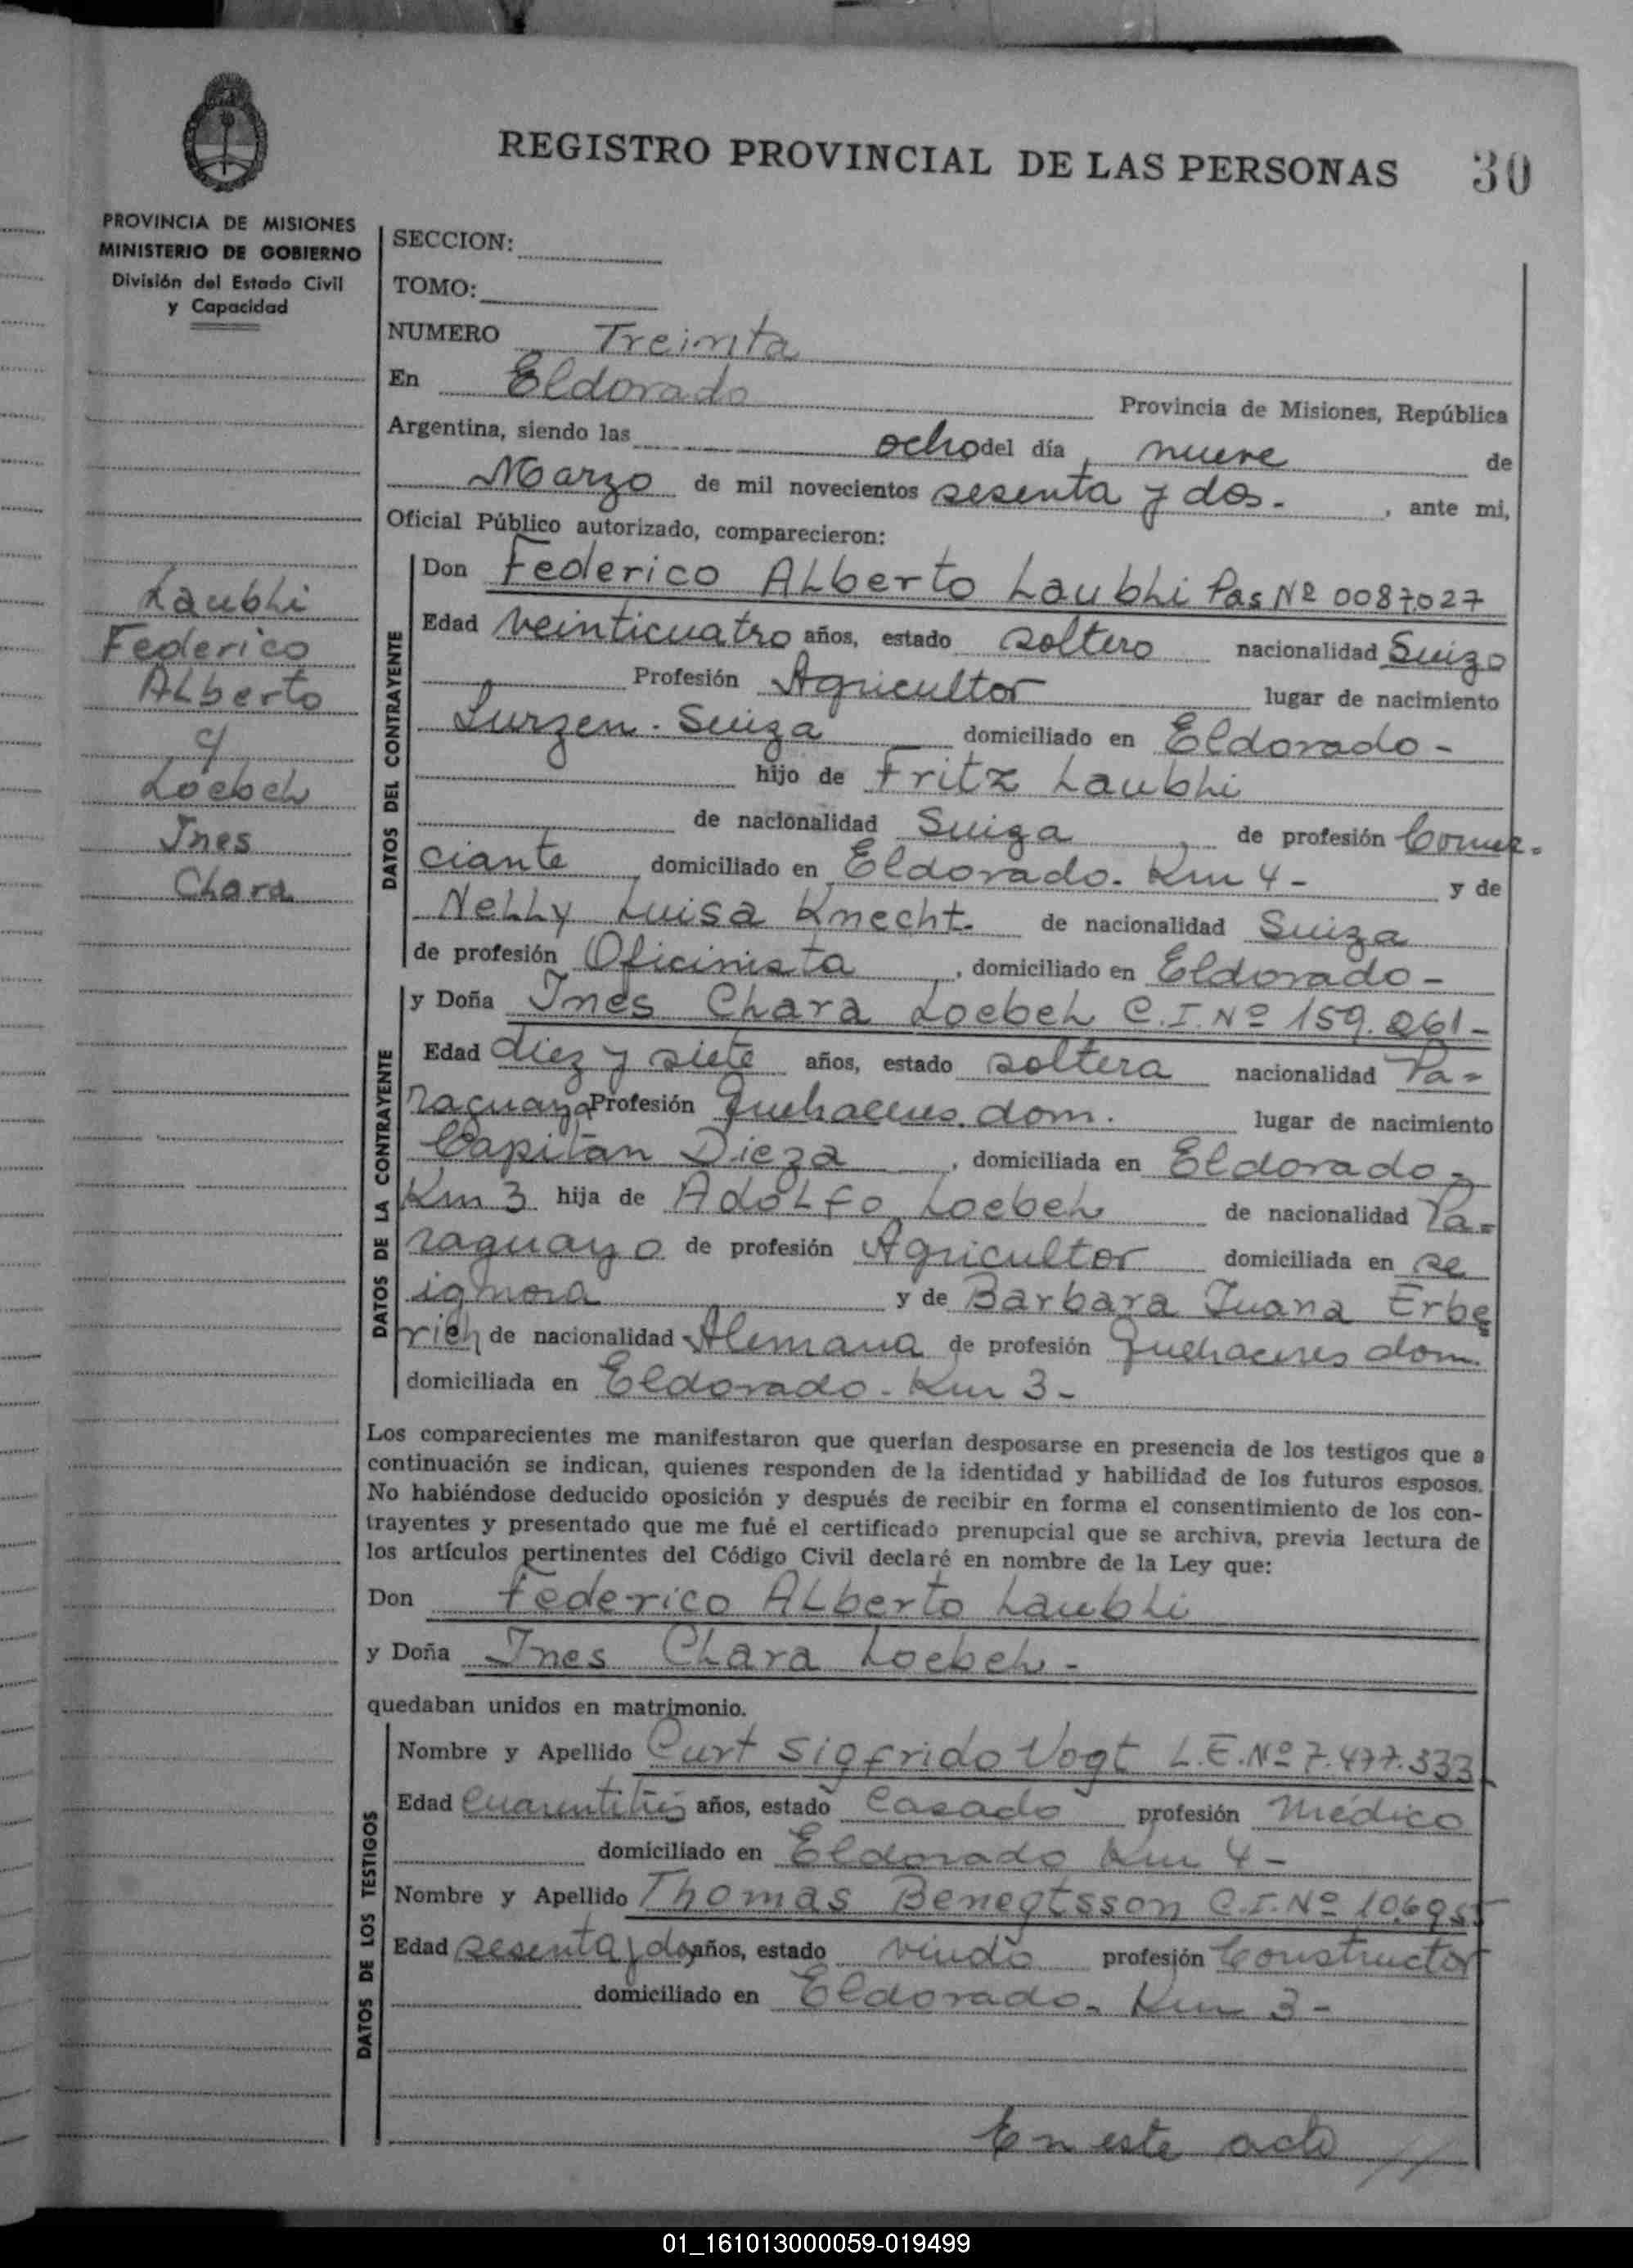 REGISTRO PROVINCIAL DE LAS PERSONAS 30
PROVINCIA DE MISIONES
MINISTERIO DE GOBIERNO
División del Estado Civil
y Capacidad
SECCION:
TOMO:
NUMERO Treinta
En Eldorado Provincia de Misiones, República
Argentina, siendo las ocho del día nueve de
Marzo de mil novecientos sesenta y dos. , ante mi,
Oficial Público autorizado, comparecieron:
Laubhi
Federico
Alberto
c/
Loebeh
Ines
Chara
DATOS DEL CONTRAYENTE
Don Federico Alberto Laubhi Pas Nº 0087027
Edad veinticuatro años, estado soltero nacionalidad Suizo
Profesión Agricultor lugar de nacimiento
Lurzen - Suiza domiciliado en Eldorado -
hijo de Fritz Laubhi
de nacionalidad Suiza de profesión Comer-
ciante domiciliado en Eldorado - Km 4 - y de
Nelly Luisa Knecht. de nacionalidad Suiza
de profesión Oficinista , domiciliado en Eldorado -
DATOS DE LA CONTRAYENTE
y Doña Ines Chara Loebeh C.I. Nº 159.261 -
Edad diez y siete años, estado soltera nacionalidad Pa-
raguaya Profesión Quehaceres dom. lugar de nacimiento
Capitan Dieza , domiciliada en Eldorado -
Km 3 hija de Adolfo Loebeh de nacionalidad Pa-
raguayo de profesión Agricultor domiciliada en se
ignora y de Barbara Juana Erbe
rich de nacionalidad Alemana de profesión Quehaceres dom.
domiciliada en Eldorado - Km 3 -
Los comparecientes me manifestaron que querían desposarse en presencia de los testigos que a
continuación se indican, quienes responden de la identidad y habilidad de los futuros esposos.
No habiéndose deducido oposición y después de recibir en forma el consentimiento de los con-
trayentes y presentado que me fué el certificado prenupcial que se archiva, previa lectura de
los artículos pertinentes del Código Civil declaré en nombre de la Ley que:
Don Federico Alberto Laubhi
y Doña Ines Chara Loebeh -
quedaban unidos en matrimonio.
DATOS DE LOS TESTIGOS
Nombre y Apellido Curt Sigfrido Vogt L.E. Nº 7.477.333
Edad cuarentitrés años, estado casado profesión médico
domiciliado en Eldorado Km 4 -
Nombre y Apellido Thomas Benegtsson C.I. Nº 10695
Edad sesenta y dos años, estado viudo profesión Constructor
domiciliado en Eldorado - Km 3 -
En este acto //
01_161013000059-019499